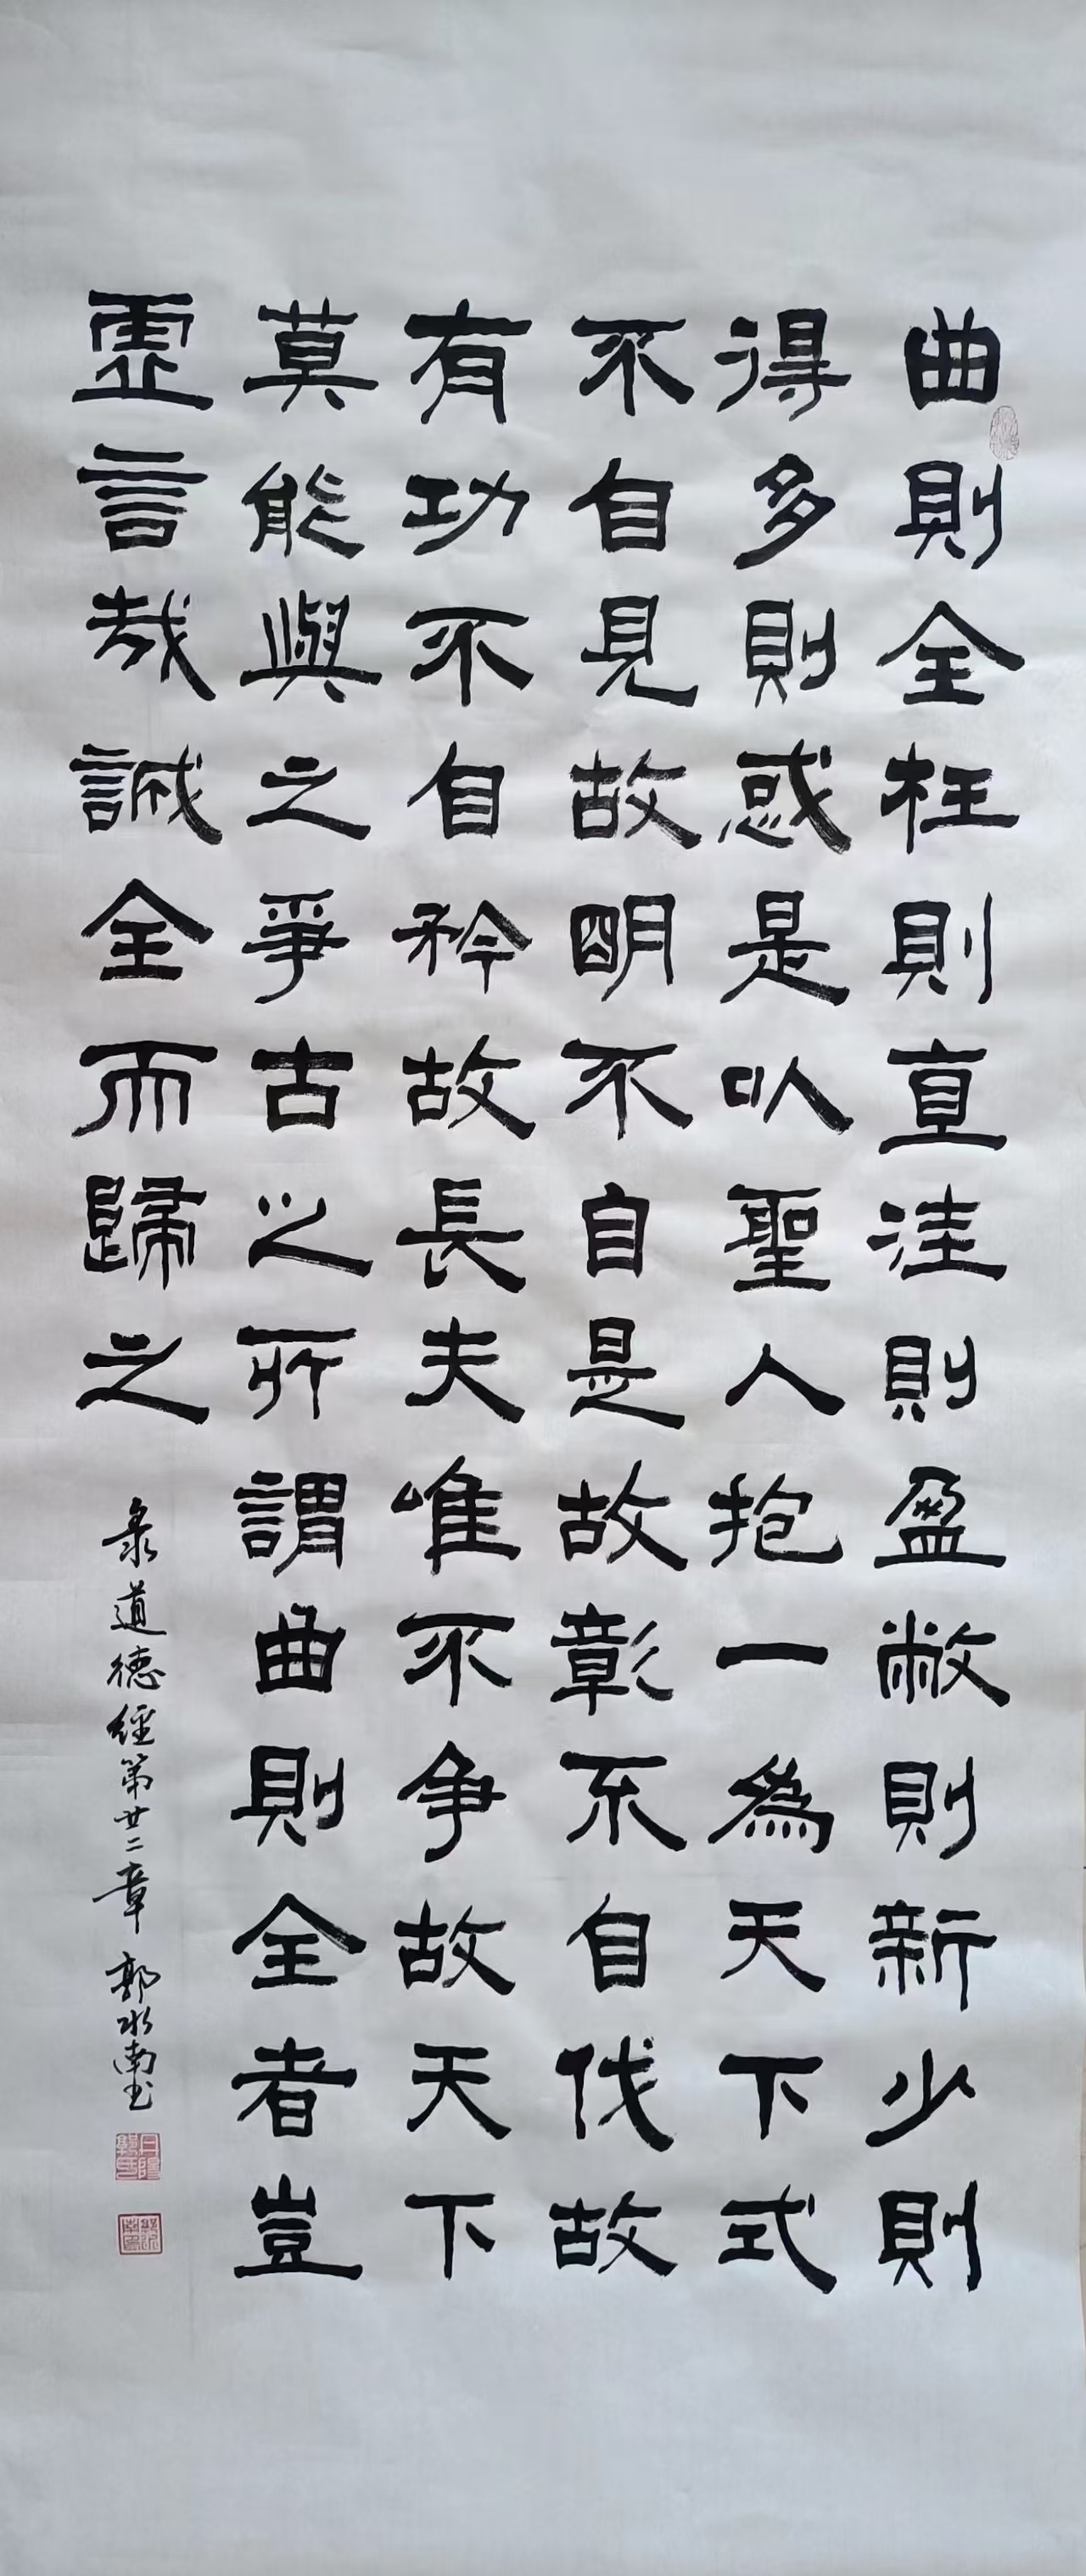 曲則全枉則直洼則盈敝則新少則
得多則惑是以聖人抱一為天下式
不自見故明不自是故彰不自伐故
有功不自矜故長夫唯不争故天下
莫能與之爭古之所謂曲則全者豈
虛言哉誠全而歸之
录道德經第廿二章 郭水南書